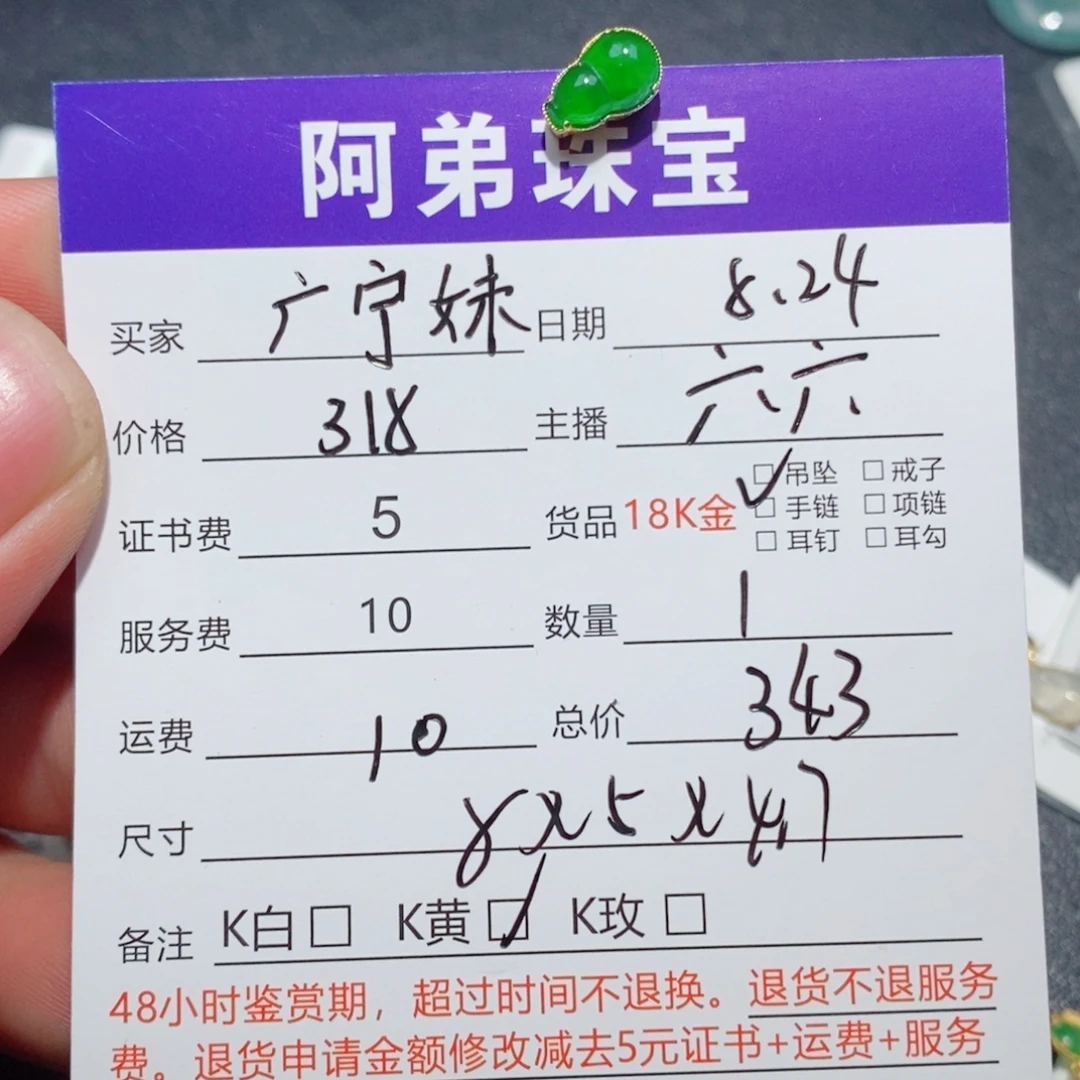 阿弟珠宝
买家 广宁妹 日期 8.24
价格 318 主播 六六
证书费 5 货品 18K金 ☑吊坠 □戒子
□手链 □项链
□耳钉 □耳勾
服务费 10 数量 1
运费 10 总价 343
尺寸 8x5x4.7
备注 K白□ K黄☑ K玫□
48小时鉴赏期，超过时间不退换。退货不退服务
费。退货申请金额修改减去5元证书+运费+服务